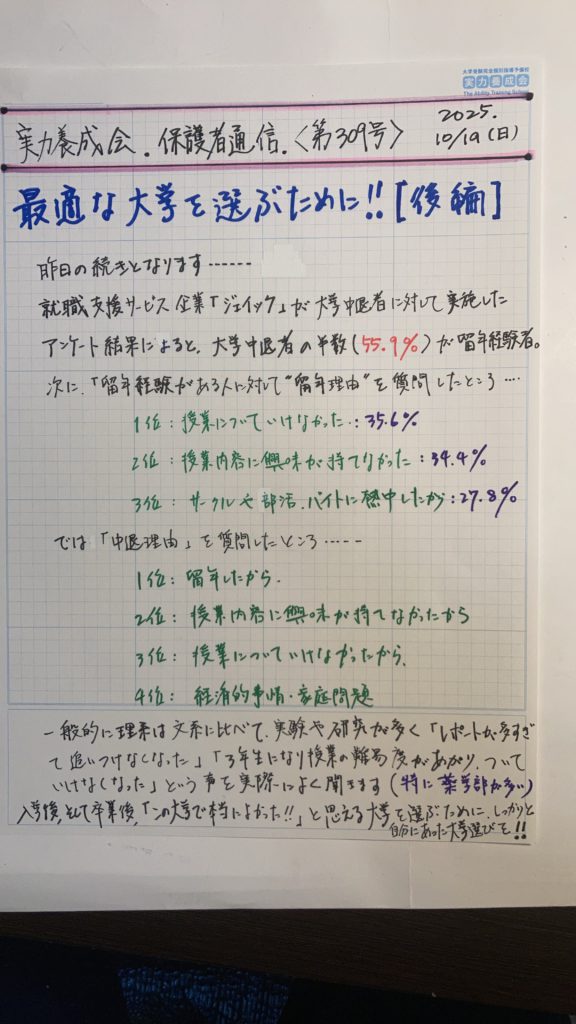 大学受験完全個別指導予備校
実力養成会
The Ability Training School
実力養成会.保護者通信.〈第309号〉
2025.
10/19(日)
最適な大学を選ぶために!![後編]
昨日の続きとなります……
就職支援サービス企業「ジェイック」が大学中退者に対して実施した
アンケート結果によると、大学中退者の半数(55.9%)が留年経験者。
次に、「留年経験がある人に対して"留年理由"を質問したところ….
1位:授業についていけなかった.:35.6%
2位:授業内容に興味が持てなかった:34.4%
3位:サークルや部活.バイトに熱中したから:27.8%
では「中退理由」を質問したところ……
1位:留年したから.
2位:授業内容に興味が持てなかったから
3位:授業についていけなかったから.
4位:経済的事情・家庭問題
一般的に理系は文系に比べて、実験や研究が多く「レポートが多すぎ
て追いつけなくなった」「3年生になり授業の難易度があがり、ついて
いけなくなった」という事を実際によく聞きます(特に薬学部が多い)
入学後、そして卒業後、「この大学で本当によかった!!」と思える大学を選ぶために、しっかりと
自分にあった大学選びを!!